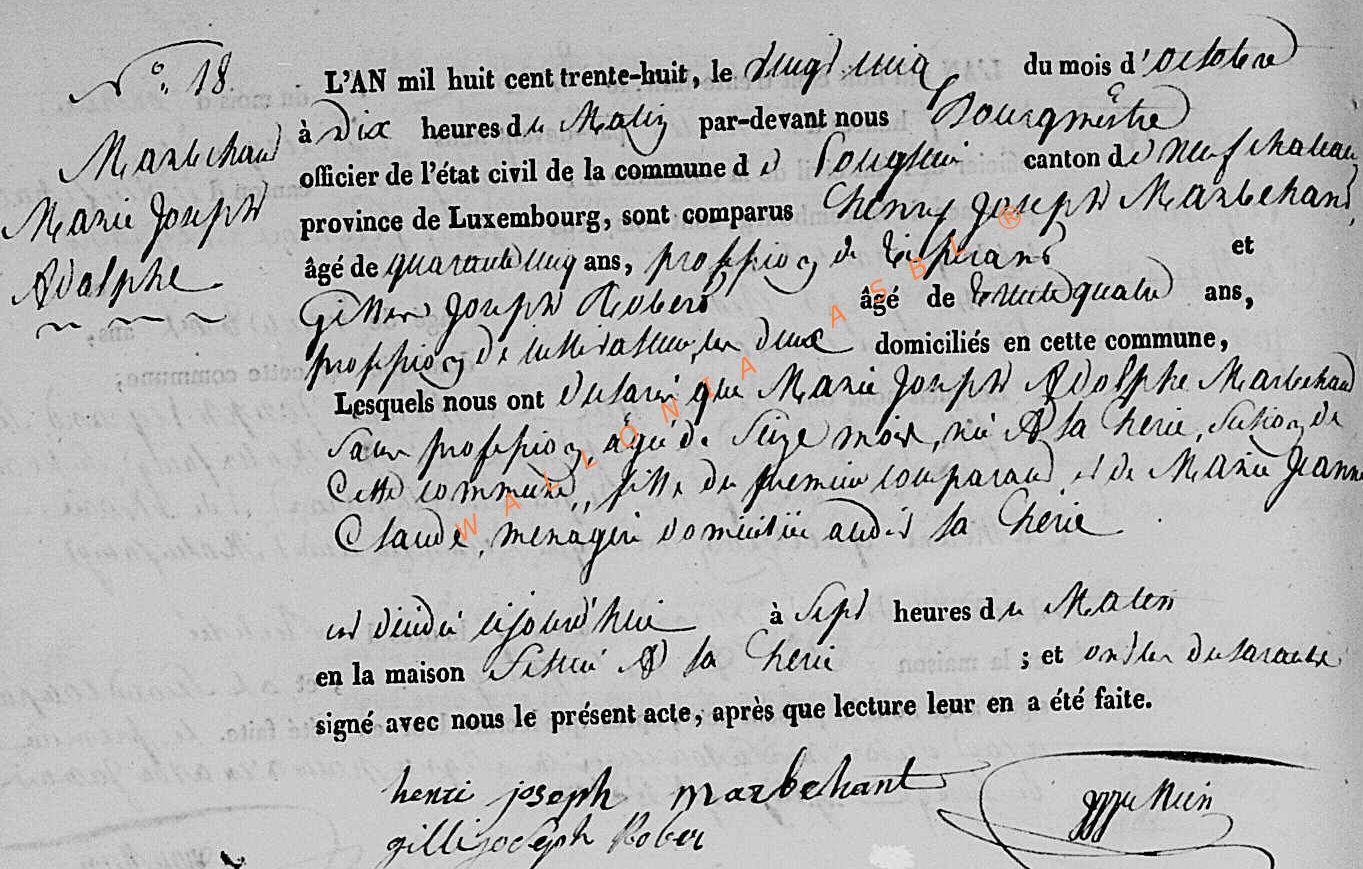 N° 18.
Marbehand
Marie Joseph
Adolphe
L'AN mil huit cent trente-huit, le vingt cinq du mois d'octobre
à Dix heures du Matin par-devant nous Bourgmèstre
officier de l'état civil de la commune d e canton de neufchateau
province de Luxembourg, sont comparus henry Joseph Marbehand,
âgé de quarante cinq ans, profession de et
Joseph Robert âgé de trente quatre ans,
profession de cultivateur, les deux domiciliés en cette commune,
Lesquels nous ont declaré que Marie Joseph Adolphe Marbehand
sans profession, agé de Seize mois, né A la Cherie, section de
Cette commune, fille du premier comparant et de Marie Jeanne
Claude, menagere domiciliée audit la Cherie
est décédé cejourd'hui à Sept heures du Maten
en la maison Située A la Cherie ; et ont les declarants
signé avec nous le présent acte, après que lecture leur en a été faite.
henri joseph marbehant
gillijoseph Rober
WALLONIA ASBL ®